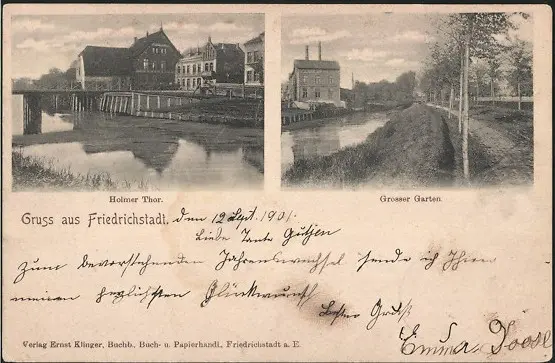 Holmer Thor.
Grosser Garten.
Gruss aus Friedrichstadt. den 12 Sept. 1901.
Liebe Tante
Zum bevorstehenden Jahreswechsel sende ich Ihnen
meinen herzlichsten Glückwunsch
Besten Gruß
Emma
Verlag Ernst Klinger, Buchb., Buch- u. Papierhandl., Friedrichstadt a. E.